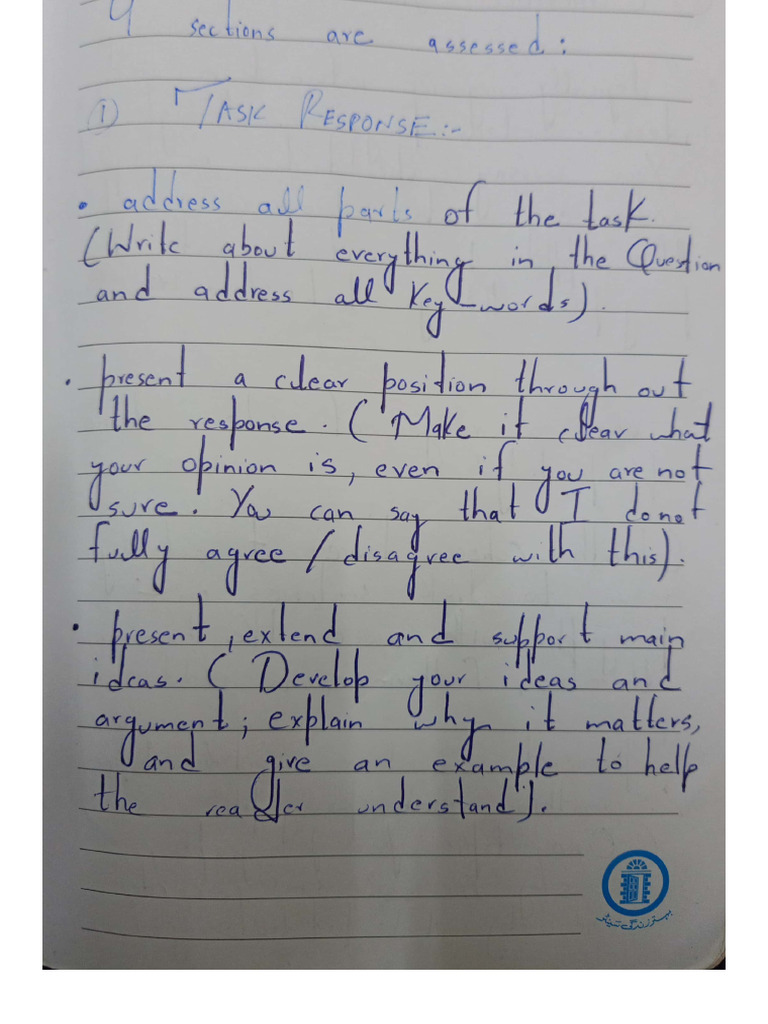 4 sections are assessed:
① TASK RESPONSE:-
• address all parts of the task.
(Write about everything in the Question
and address all key-words).
• present a clear position through out
the response. (Make it clear what
your opinion is, even if you are not
sure. You can say that I donot
fully agree / disagree with this).
• present, extend and support main
ideas. (Develop your ideas and
argument; explain why it matters,
and give an example to help
the reader understand).
بہتر زندگی سینٹر